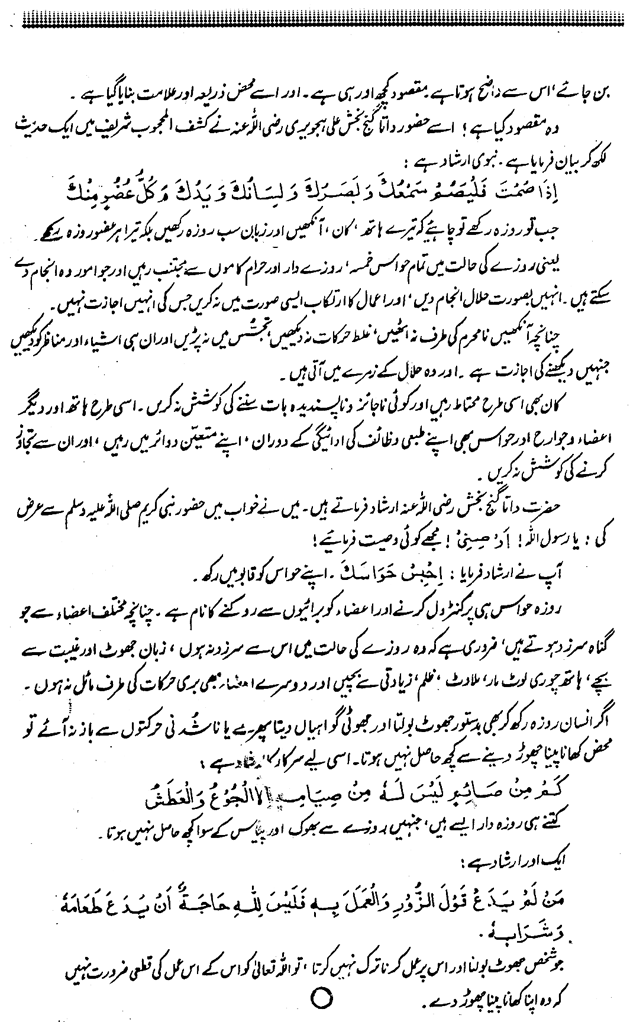 بن جائے، اس سے واضح ہوتا ہے مقصود کچھ اور ہی ہے۔ اور اسے محض ذریعہ اور علامت بنایا گیا ہے۔
وہ مقصود کیا ہے؟ اسے حضور داتا گنج بخش علی ہجویری رضی اللہ عنہ نے کشف المحجوب شریف میں ایک حدیث
لکھ کر بیان فرمایا ہے۔ نبوی ارشاد ہے :
اِذَا صُمْتَ فَلْيَصُمْ سَمْعُكَ وَلَبَصَرُكَ وَلِسَانُكَ وَيَدُكَ وَكُلُّ عُضْوٍ مِنْكَ
جب تو روزہ رکھے تو چاہئے کہ تیرے ہاتھ، کان، آنکھیں اور زبان سب روزہ رکھیں بلکہ تیرا ہر عضو روزہ
یعنی روزے کی حالت میں تمام حواس خمسہ، روزے دار اور حرام کاموں سے مجتنب رہیں اور جو امور وہ انجام دے
سکتے ہیں۔ انہیں بصورت حلال انجام دیں، اور اعمال کا ارتکاب ایسی صورت میں نہ کریں جس کی انہیں اجازت نہیں۔
چنانچہ آنکھیں نامحرم کی طرف نہ اٹھیں، غلط حرکات نہ دیکھیں، تجسّس میں نہ پڑیں اور ان ہی اشیاء اور مناظر کو دیکھیں
جنہیں دیکھنے کی اجازت ہے۔ اور وہ حلال کے زمرے میں آتی ہیں۔
کان بھی اسی طرح محتاط رہیں اور کوئی ناجائز و ناپسندیدہ بات سننے کی کوشش نہ کریں۔ اسی طرح ہاتھ اور دیگر
اعضاء و جوارح اور حواس بھی اپنے طبعی وظائف کی ادائیگی کے دوران، اپنے متعیّن دوائر میں رہیں، اور ان سے تجاوز
کرنے کی کوشش نہ کریں۔
حضرت داتا گنج بخش رضی اللہ عنہ ارشاد فرماتے ہیں۔ میں نے خواب میں حضور نبی کریم صلی اللہ علیہ وسلم سے عرض
کی : یا رسول اللہ! اَوْصِنِیْ! مجھے کوئی وصیت فرمائیے!
آپ نے ارشاد فرمایا : اِحْبِسْ حَوَاسَكَ۔ اپنے حواس کو قابو میں رکھ۔
روزہ حواس ہی پر کنٹرول کرنے اور اعضاء کو برائیوں سے روکنے کا نام ہے۔ چنانچہ مختلف اعضاء سے جو
گناہ سرزد ہوتے ہیں، ضروری ہے کہ وہ روزے کی حالت میں اس سے سرزد نہ ہوں، زبان جھوٹ اور غیبت سے
بچے، ہاتھ چوری لوٹ مار، ملاوٹ، ظلم، زیادتی سے بچیں اور دوسرے اعضاء بھی بری حرکات کی طرف مائل نہ ہوں۔
اگر انسان روزہ رکھ کر بھی بدستور جھوٹ بولتا اور جھوٹی گواہیاں دیتا پھرے یا ناشدنی حرکتوں سے باز نہ آئے تو
محض کھانا پینا چھوڑ دینے سے کچھ حاصل نہیں ہوتا۔ اسی لیے سرکار کا ارشاد ہے :
كَمْ مِنْ صَائِمٍ لَيْسَ لَهٗ مِنْ صِيَامِهٖ اِلَّا الْجُوْعُ وَالْعَطَشُ
کتنے ہی روزہ دار ایسے ہیں، جنہیں روزے سے بھوک اور پیاس کے سوا کچھ حاصل نہیں ہوتا۔
ایک اور ارشاد ہے:
مَنْ لَمْ يَدَعْ قَوْلَ الزُّوْرِ وَالْعَمَلَ بِهٖ فَلَيْسَ لِلّٰهِ حَاجَةٌ اَنْ يَدَعَ طَعَامَهٗ
وَشَرَابَهٗ۔
جو شخص جھوٹ بولنا اور اس پر عمل کرنا ترک نہیں کرتا، تو اللہ تعالیٰ کو اس کے اس عمل کی قطعی ضرورت نہیں
کہ وہ اپنا کھانا پینا چھوڑ دے۔